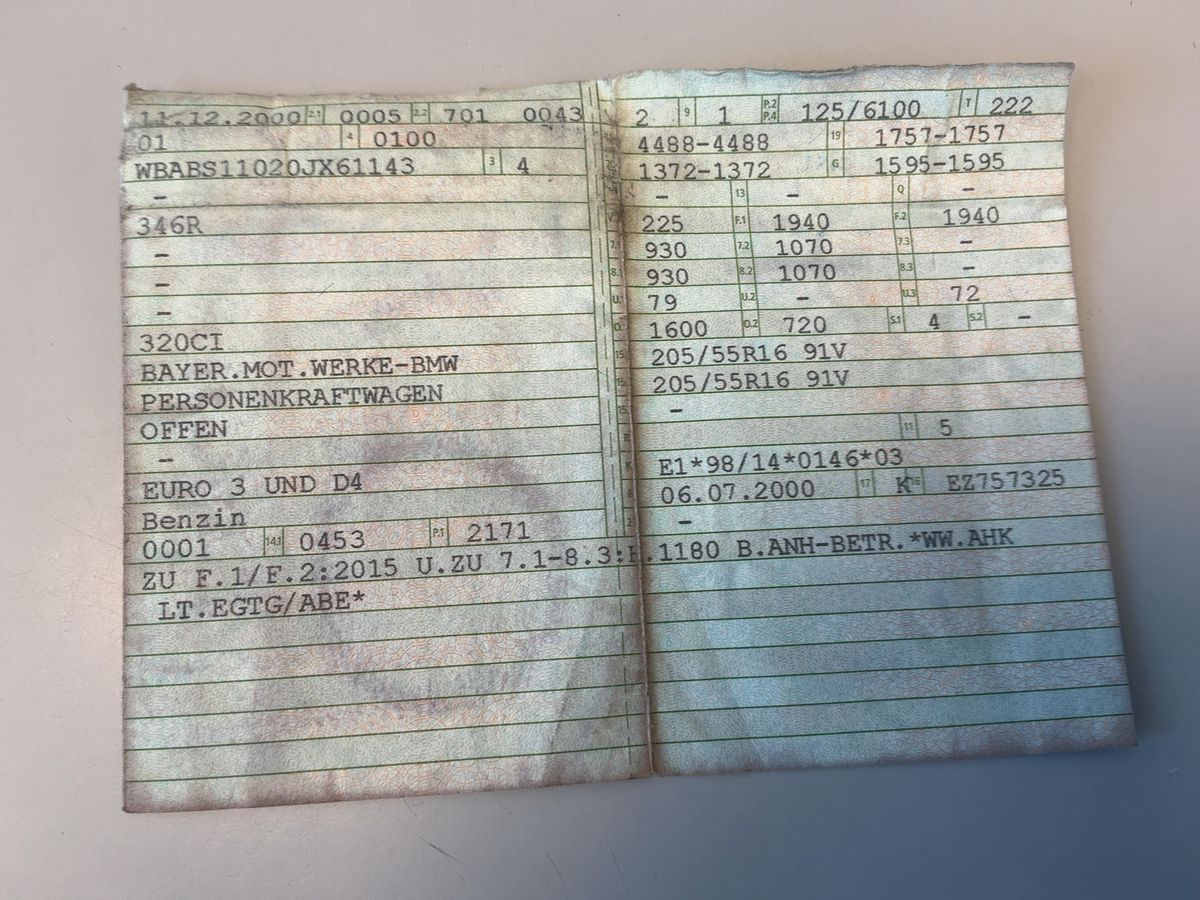 11.12.2000 2.1 0005 2.2 701 0043
01 4 0100
WBABS11020JX61143 3 4
–
346R
–
–
–
320CI
BAYER.MOT.WERKE-BMW
PERSONENKRAFTWAGEN
OFFEN
–
EURO 3 UND D4
Benzin
0001 14.1 0453 P.1 2171
2 9 1 P.2 P.4 125/6100 T 222
4488-4488 19 1757-1757
1372-1372 G 1595-1595
– 13 – Q –
225 F.1 1940 F.2 1940
7.1 930 7.2 1070 7.3 –
8.1 930 8.2 1070 8.3 –
U.1 79 U.2 – U.3 72
O. 1600 O.2 720 S.1 4 S.2 –
15. 205/55R16 91V
15. 205/55R16 91V
15. –
R 11 5
K E1*98/14*0146*03
6 06.07.2000 17 K 16 EZ757325
–
ZU F.1/F.2:2015 U.ZU 7.1-8.3:H.1180 B.ANH-BETR.*WW.AHK
LT.EGTG/ABE*